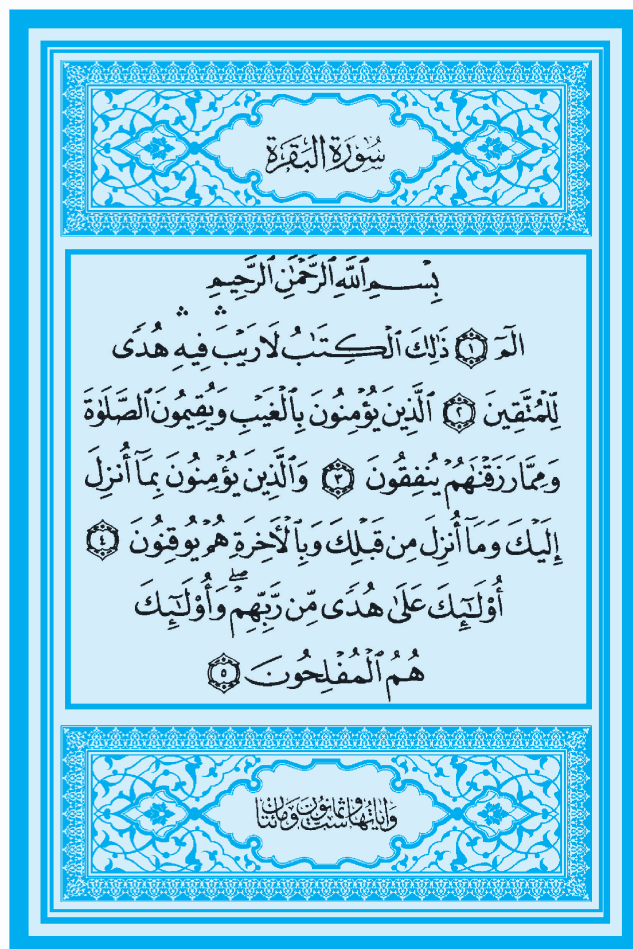 سُورَةُ البَقَرَةِ
بِسْمِ ٱللَّهِ ٱلرَّحْمَٰنِ ٱلرَّحِيمِ
الٓمٓ ١ ذَٰلِكَ ٱلْكِتَٰبُ لَا رَيْبَ ۛ فِيهِ ۛ هُدًى
لِّلْمُتَّقِينَ ٢ ٱلَّذِينَ يُؤْمِنُونَ بِٱلْغَيْبِ وَيُقِيمُونَ ٱلصَّلَوٰةَ
وَمِمَّا رَزَقْنَٰهُمْ يُنفِقُونَ ٣ وَٱلَّذِينَ يُؤْمِنُونَ بِمَآ أُنزِلَ
إِلَيْكَ وَمَآ أُنزِلَ مِن قَبْلِكَ وَبِٱلْأَخِرَةِ هُمْ يُوقِنُونَ ٤
أُوْلَٰٓئِكَ عَلَىٰ هُدًى مِّن رَّبِّهِمْ ۖ وَأُوْلَٰٓئِكَ
هُمُ ٱلْمُفْلِحُونَ ٥
وَآيَاتُهَا سِتٌّ وَثَمَانُونَ وَمِائَتَانِ